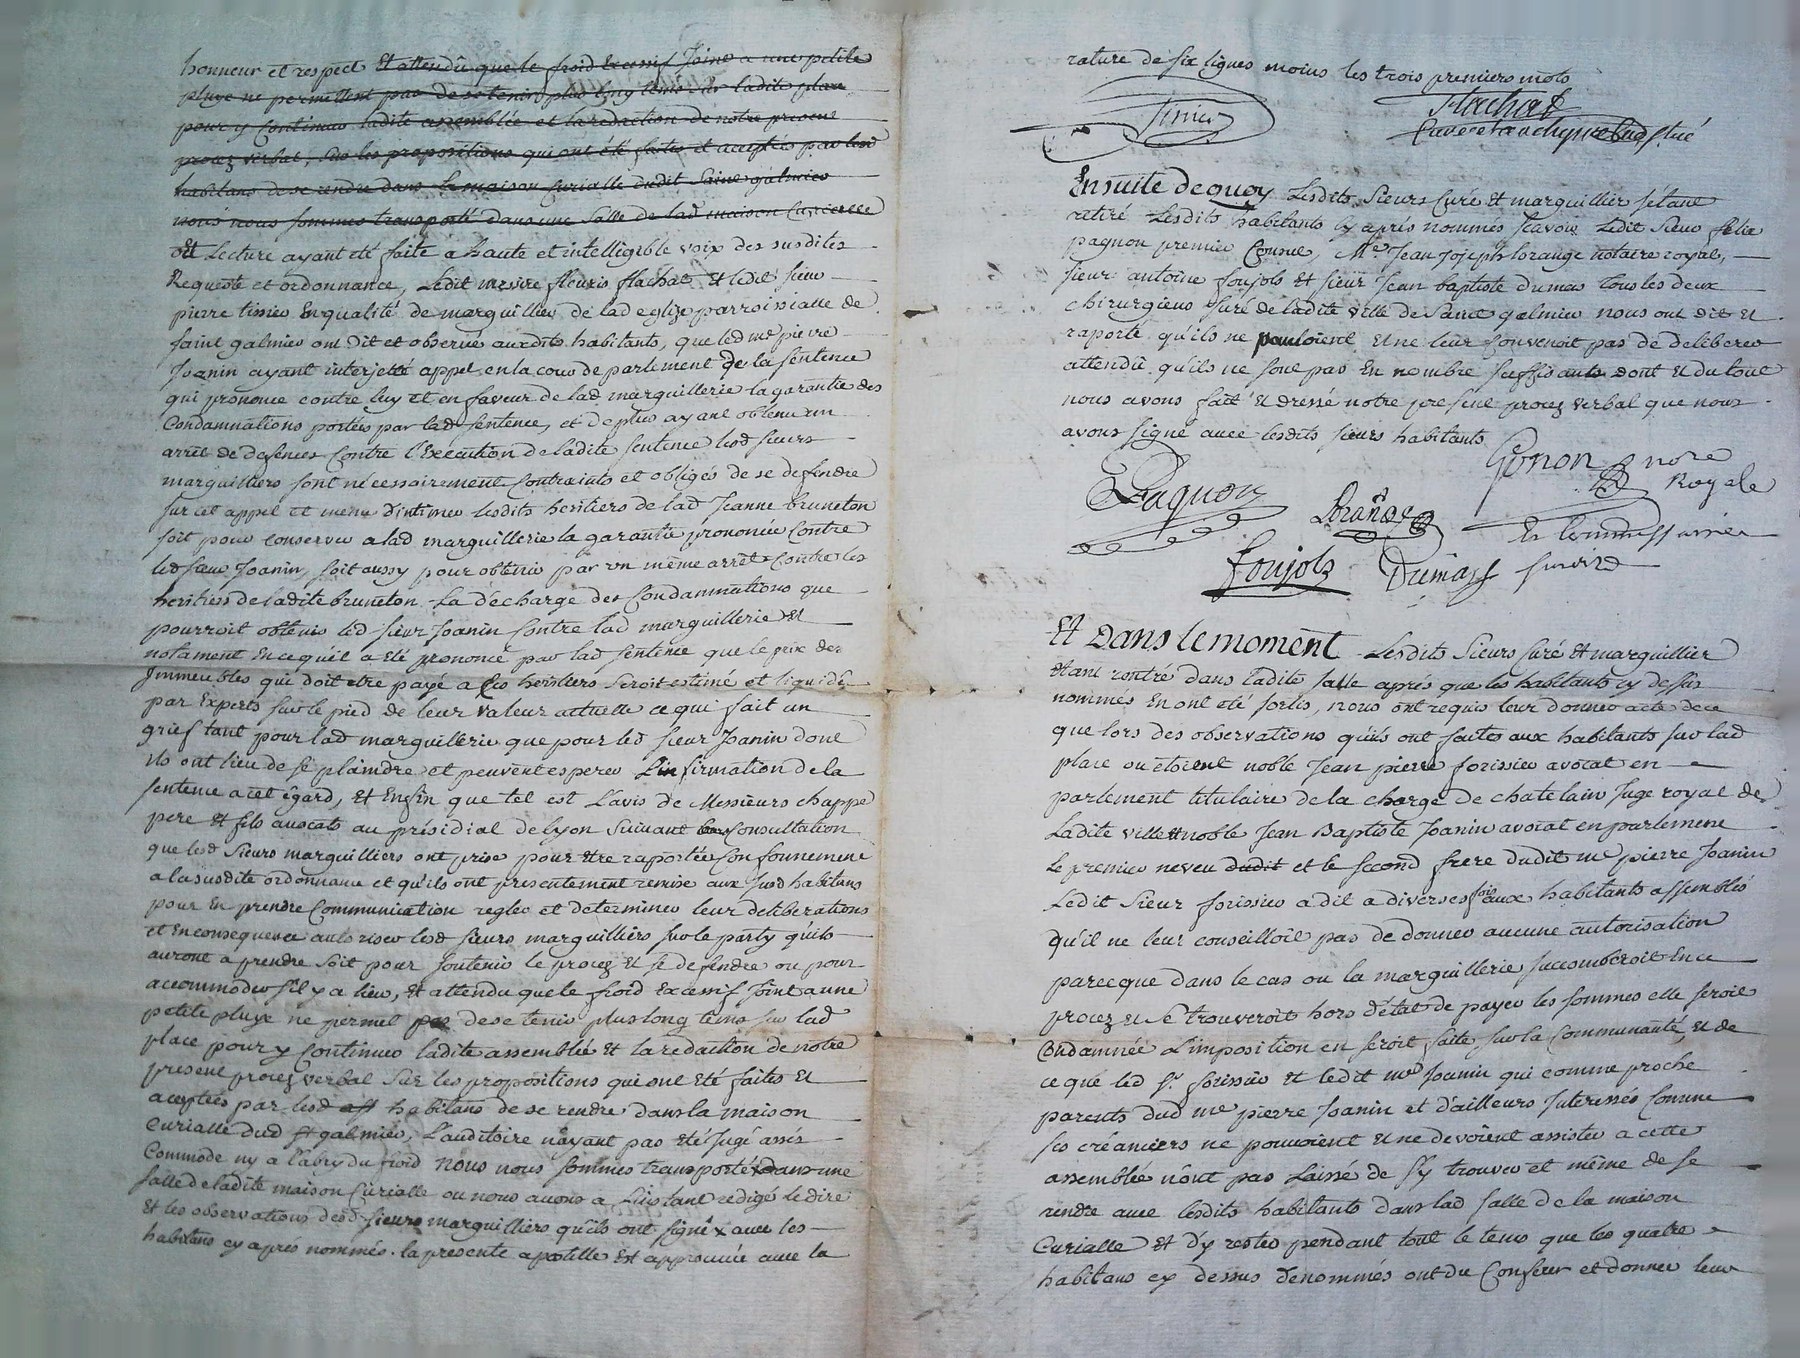 honneur et respect et attendû que le froid Excessif Joint a une petite
pluye ne permettent pas de se tenir plus long tems sur ladite place
pour y Continuer ladite assemblée et la redaction de notre present
procez verbal, sur les propositions qui ont été faites et aceptées par lesd
habitans de se rendre dans la maison Curialle dudit Saint galmier
nous nous sommes transporté dans une Salle de lad maison Curialle
Et Lecture ayant eté faite a haute et intelligible voix des susdites
Requeste et ordonnance, Ledit messire fleuris flachat et ledit sieur
pierre tissier En qualité de marguillier de lad eglize parroissialle de
saint galmier ont Dit et observé auxdits habitants, que led me pierre
Joanin ayant interjetté appel en la cour de parlement de la sentence
qui prononce contre luy et en faveur de lad marguillerie la garantie des
Condamnations portées par lad sentence, et de plus ayant obtenu un
arrêt de defences Contre l'Execution de ladite sentence lesd sieurs
marguilliers sont necessairement Contraints et obligés de se deffendre
sur cet appel et meme d'intimer lesdits heritiers de lad Jeanne bruneton
soit pour conserver a lad marguillerie la garantie prononcée Contre
led sieur Joanin, soit aussy pour obtenir par un même arrêt Contre les
heritiers de ladite bruneton La décharge des Condamnations que
pourroit obtenir led sieur Joanin Contre lad marguillerie Et
notament En ce qu'il a été prononcé par lad sentence que le prix des
Immeubles qui doit etre payé a ses heritiers seroit estimé et liquidé
par Experts sur le pied de leur valeur actuelle ce qui fait un
grief tant pour lad marguillerie que pour led sieur Joanin dont
ils ont lieu de se plaindre et peuvent esperer L'infirmation de la
sentence a cet égard, Et Enfin que tel est L'avis de Messieurs chappe
pere Et fils avocats au présidial de lyon suivant la Consultation
que lesd Sieurs marguilliers ont prise pour être raportée Conformement
a la susdite ordonnance et qu'ils ont presentement remise aux susd habitans
pour En prendre Communication regler et determiner leur deliberations
et En consequence autoriser lesd sieurs marguilliers sur le party qu'ils
auront a prendre soit pour soutenir le procez Et se defendre ou pour
accommoder s'il y a lieu, Et attendu que le froid Excessif Joint a une
petite pluye ne permet pas de se tenir plus long tems sur lad
place pour y Continuer ladite assemblée Et la redaction de notre
present procez verbal sur les propositions qui ont Eté faites Et
aceptées par lesd habitans de se rendre dans la maison
Curialle dud st galmier, L'auditoire n'ayant pas Eté Jugé assés
Commode ny a l'abry du froid nous nous sommes transportés dans une
salle de ladite maison Curialle ou nous avons a L'instant redigé Le dire
Et les observations desd sieurs marguilliers qu'ils ont signé avec les
habitans cy aprés nommés. la presente apostille Est approuvée avec la
rature de six lignes moins les trois premiers mots
tissier
flachat
curé
Ensuite de quoy Lesdits Sieurs Curé Et marguillier s'étant
retiré Lesdits habitants cy aprés nommés scavoir Ledit Sieur felix
pagnon premier Consul, Me. Jean Joseph lorange notaire royal,
sieur antoine foujols Et sieur Jean baptiste dumas tous les deux
chirurgiens Juré de ladite ville de Saint galmier nous ont dit Et
raporté qu'ils ne pouvoient Et ne leur Convenoit pas de deliberer
attendû qu'ils ne sont pas En nombre suffisants dont Et du tout
nous avons fait Et dressé notre present procez verbal que nous
avons signé avec lesdits sieurs habitants
Gonon nore
Royale
Pagnon
Lorange
Et Commissaire
foujols
Dumas
Et Dans le moment Lesdits Sieurs Curé Et marguillier
étant rentré dans ladite salle aprés que les habitants cy dessus
nommés En ont eté sortis, nous ont requis leur donner acte de ce
que lors des observations qu'ils ont faites aux habitants sur lad
place ou étoient noble Jean pierre forissier avocat en
parlement titulaire de la charge de chatelain Juge royal de
Ladite ville Et noble Jean Baptiste Joanin avocat en parlement
Le premier neveu dudit et le second frere dudit me pierre Joanin
Ledit Sieur forissier a dit a diverses fois aux habitants assemblés
qu'il ne leur conseilloit pas de donner aucune autorisation
parce que dans le cas ou la marguillerie succomberoit En ce
procez Et Se trouveroit hors d'état de payer les sommes elle seroit
Condamnée L'imposition en seroit faite sur la Communauté, Et de
ce que led Sr. forissier Et ledit me Joanin qui comme proche
parents dud me pierre Joanin et d'ailleurs Interessés Comme
ses créanciers ne pouvoient Et ne devoient assister a cette
assemblée n'ont pas Laissé de s'y trouver et même de se
rendre avec lesdits habitants dans lad salle de la maison
Curialle Et d'y rester pendant tout le tems que les quatre
habitans cy dessus dénommés ont du Conferer et donner leur